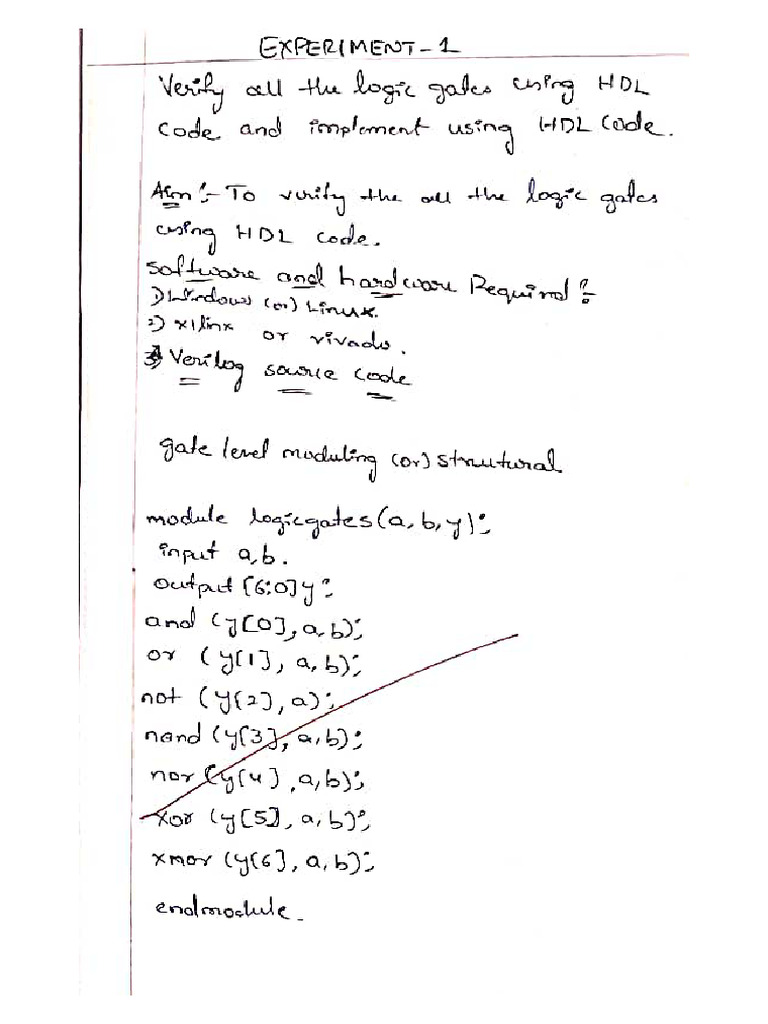 EXPERIMENT-1
Verify all the logic gates using HDL
code and implement using HDL code.
Aim:- To verify the all the logic gates
using HDL code.
Software and hardware Required:-
1) Windows (or) Linux.
2) xilinx or vivado.
3) Verilog source code
gate level moduling (or) strutural
module logicgates(a,b,y);
input a,b.
output [6:0]y;
and (y[0], a,b);
or (y[1], a,b);
not (y[2], a);
nand (y[3], a,b);
nor (y[4], a,b);
xor (y[5], a,b);
xnor (y[6], a,b);
endmodule.